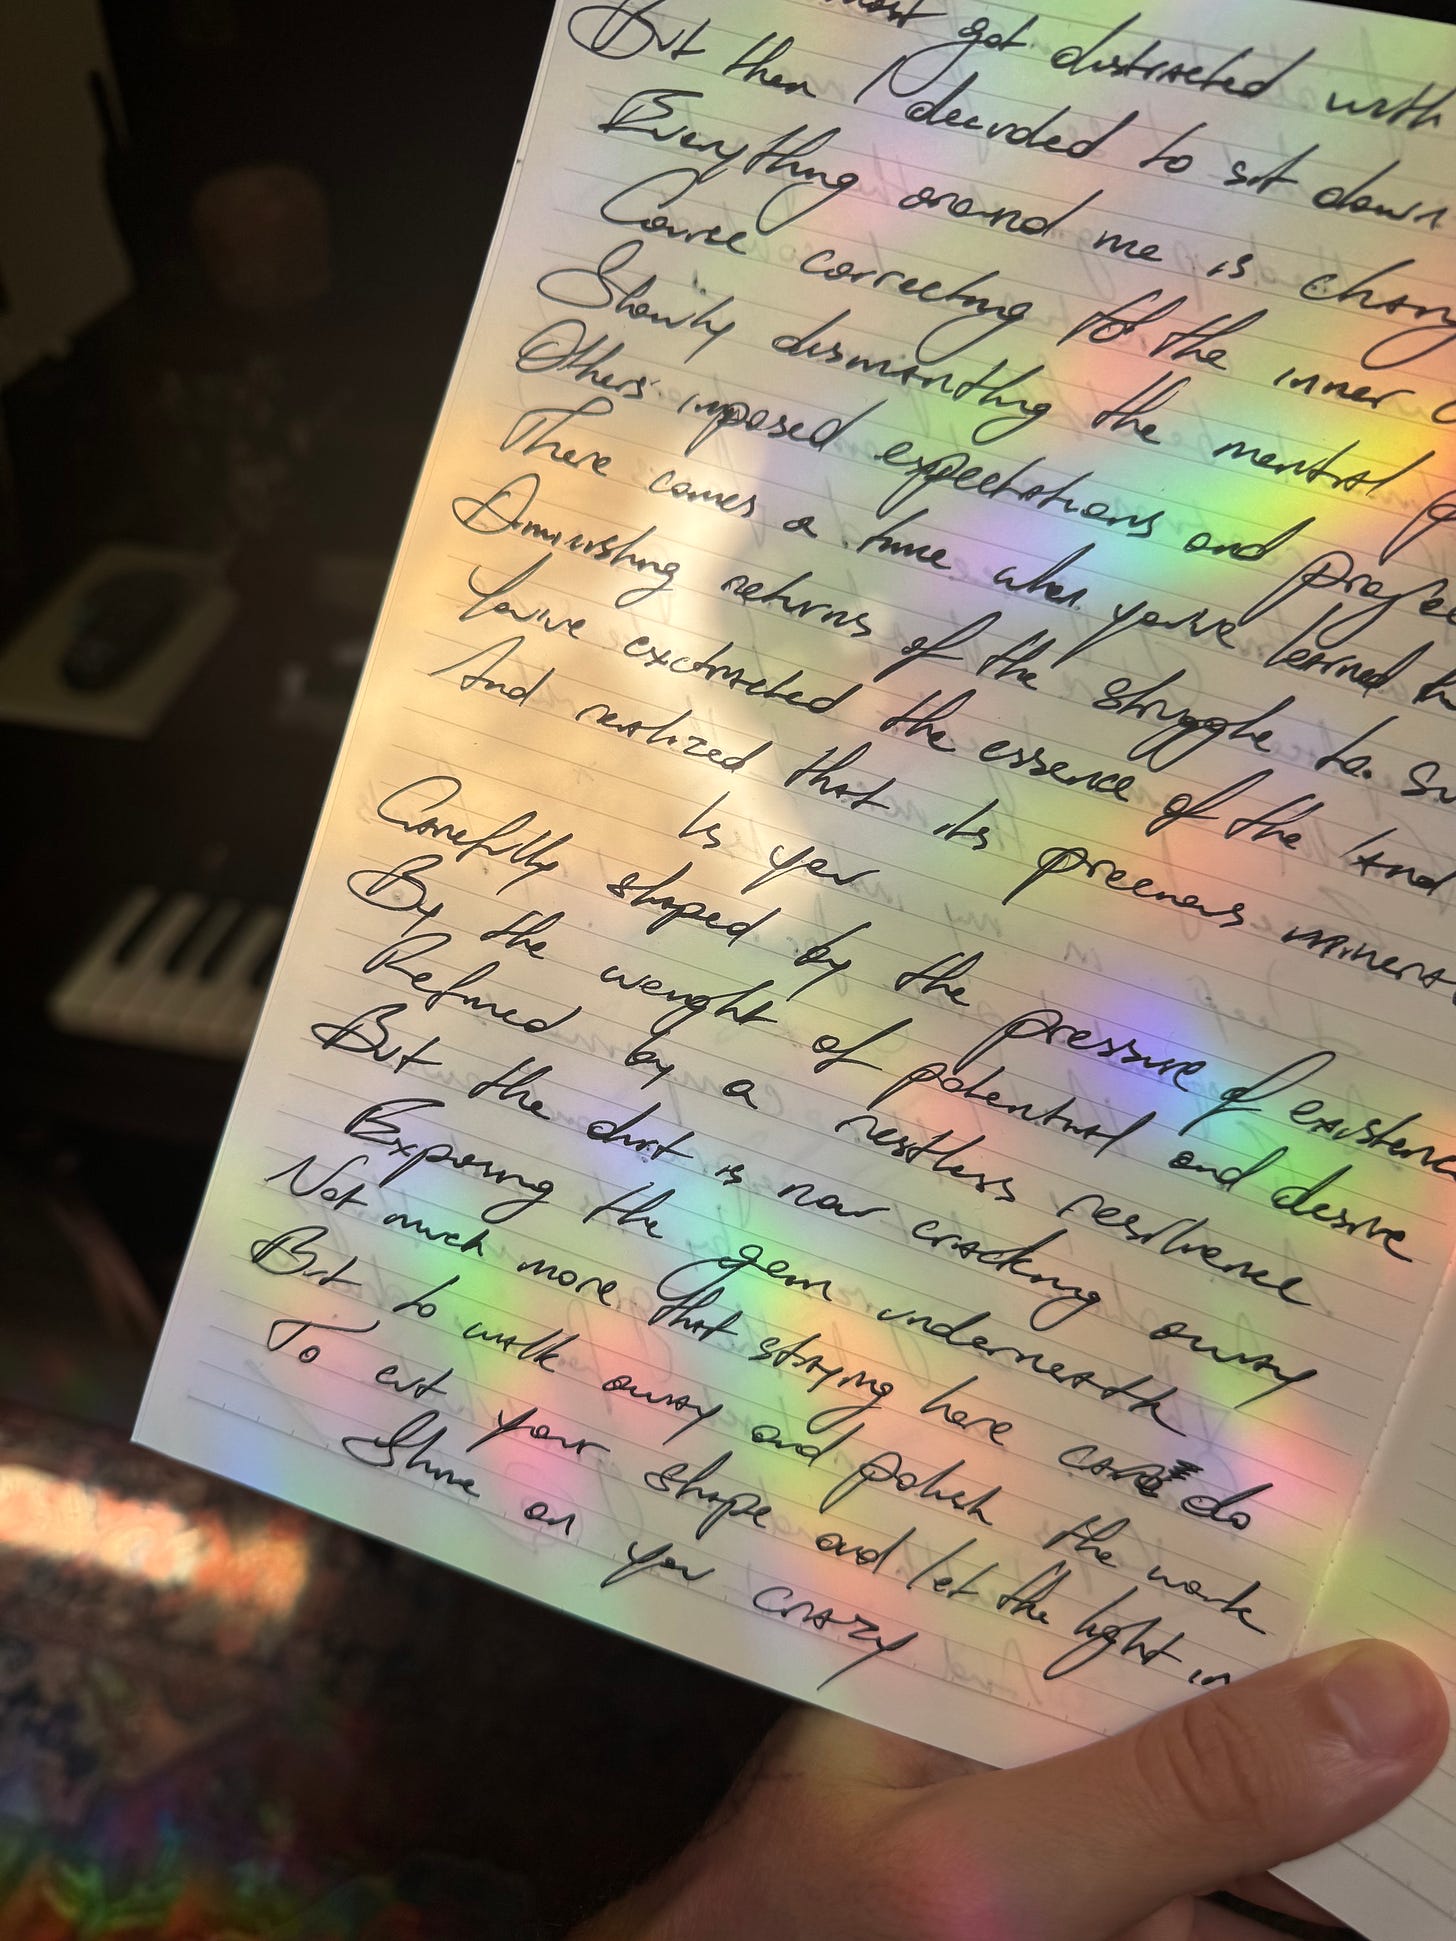 got distracted with
But then I decided to sit down
Everything around me is
Course correcting to the inner
Slowly dismantling the mental
Others' imposed expectations and
There comes a time when you've learned
Diminishing returns of the struggle to
You've exctracted the essence of the land
And realized that its precious
Is you
Carefully shaped by the pressure of
By the weight of potential and desire
Refined by a restless resilience
But the dirt is now cracking away
Exposing the gem underneath
Not much more that staying here can do
But to walk away and polish the work
To cut your shape and let the light in
Shine on you crazy